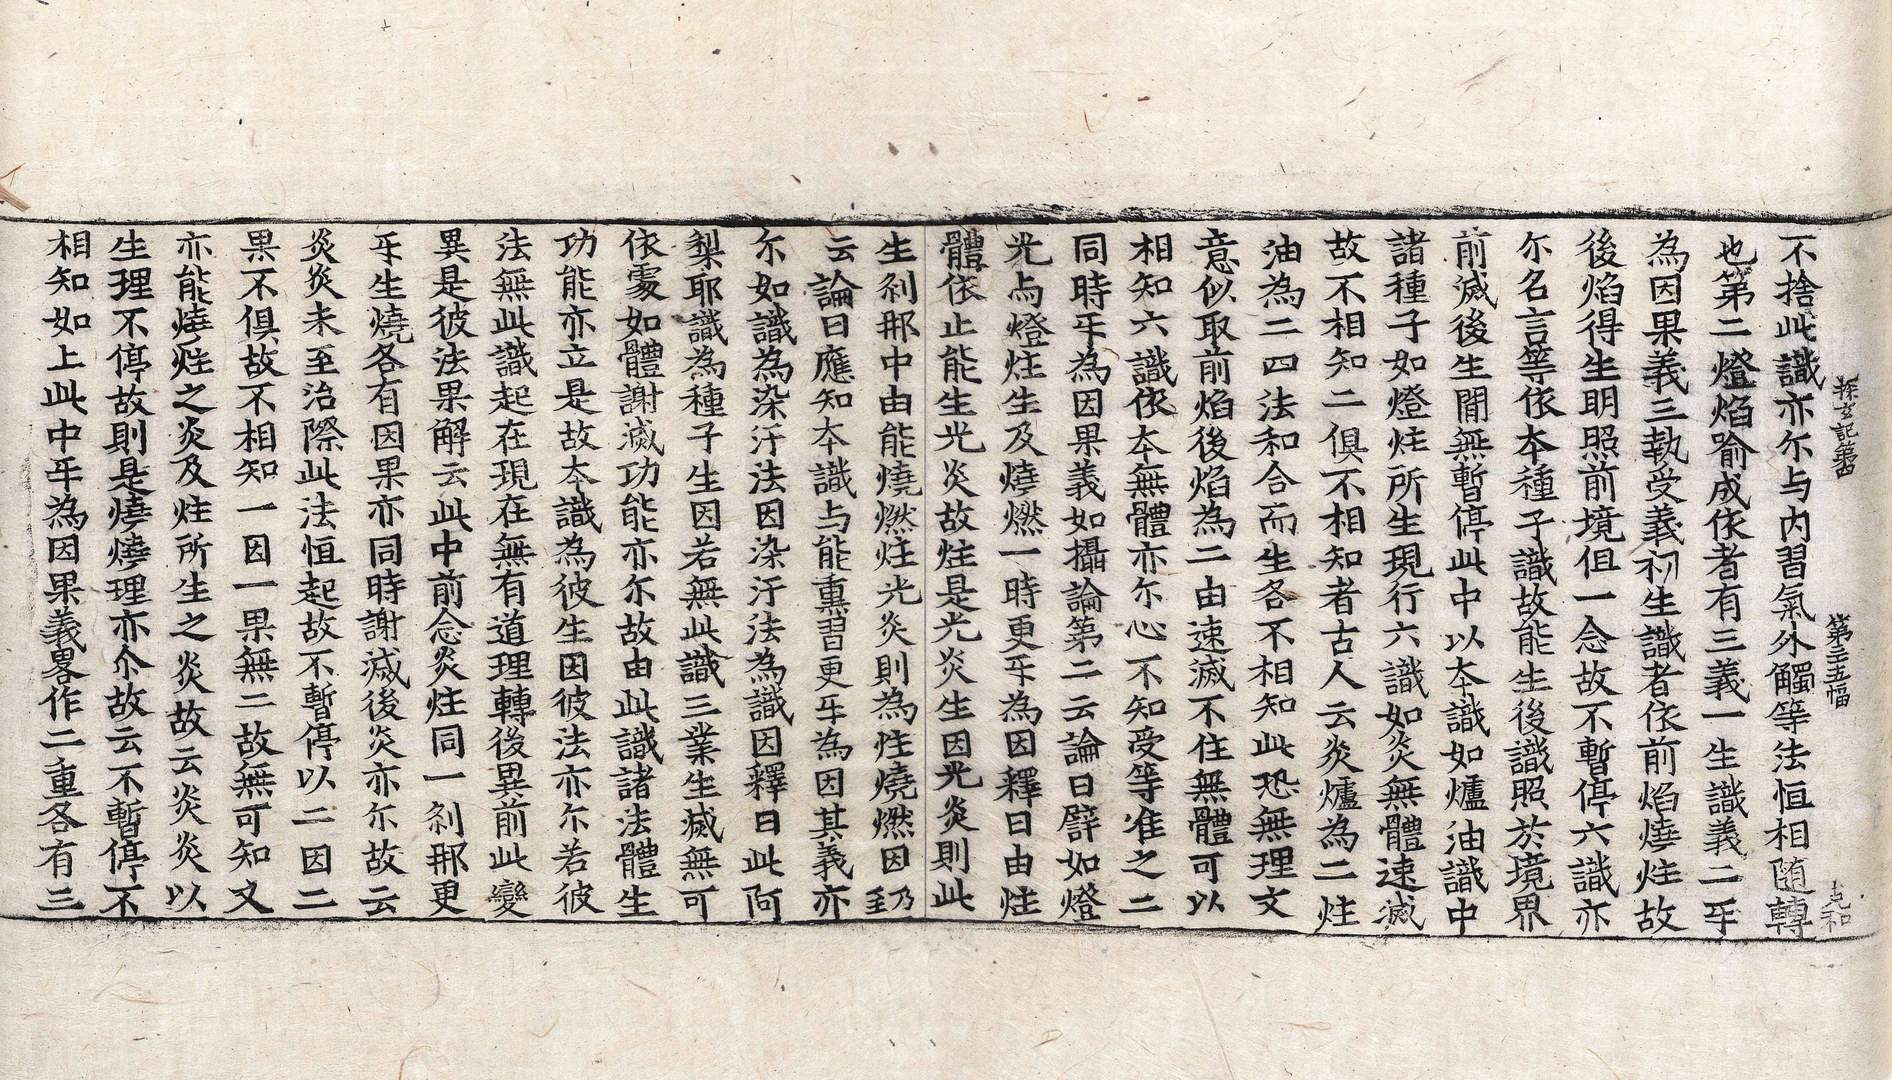 探玄記第四
第三十五幅
光和
不捨此識亦尓与内習氣外觸等法恒相随轉
也第二燈焰喻成依者有三義一生識義二㸦
為因果義三執受義初生識者依前焰燒炷故
後焰得生明照前境但一念故不暫停六識亦
尓名言等依夲種子識故能生後識照於境界
前滅後生閒無暫停此中以夲識如爐油識中
諸種子如燈炷所生現行六識如炎無體速滅
故不相知二俱不相知者古人云炎爐為二炷
油為二四法和合而生各不相知此恐無理文
意似取前焰後焰為二由速滅不住無體可以
相知六識依夲無體亦尓心不知受等准之二
同時㸦為因果義如攝論第二云論曰譬如燈
光与燈炷生及燒燃一時更㸦為因釋曰由炷
體依止能生光炎故炷是光炎生因光炎則此
生刹那中由能燒燃炷光炎則為炷燒燃因乃至
云論曰應知夲識与能熏習更㸦為因其義亦
尓如識為染汙法因染汙法為識因釋曰此阿
梨耶識為種子生因若無此識三業生滅無可
依處如體謝滅功能亦尓故由此識諸法體生
功能亦立是故夲識為彼生因彼法亦尓若彼
法無此識起在現在無有道理轉後異前此變
異是彼法果解云此中前念炎炷同一刹那更
㸦生燒各有因果亦同時謝滅後炎亦尓故云
炎炎未至治際此法恒起故不暫停以二因二
果不俱故不相知一因一果無二故無可知又
亦能燒炷之炎及炷所生之炎故云炎炎以
生理不停故則是燒燒理亦尒故云不暫停不
相知如上此中㸦為因果義畧作二重各有三